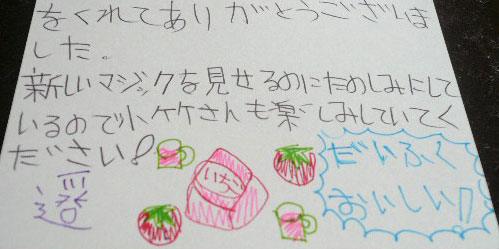 をくれてありがとうございま
した。
新しいマジックを見せるのにたのしみにして
いるので小ケケさんも楽しみしていてく
ださい!
いちご
だいふく
おいしい!!